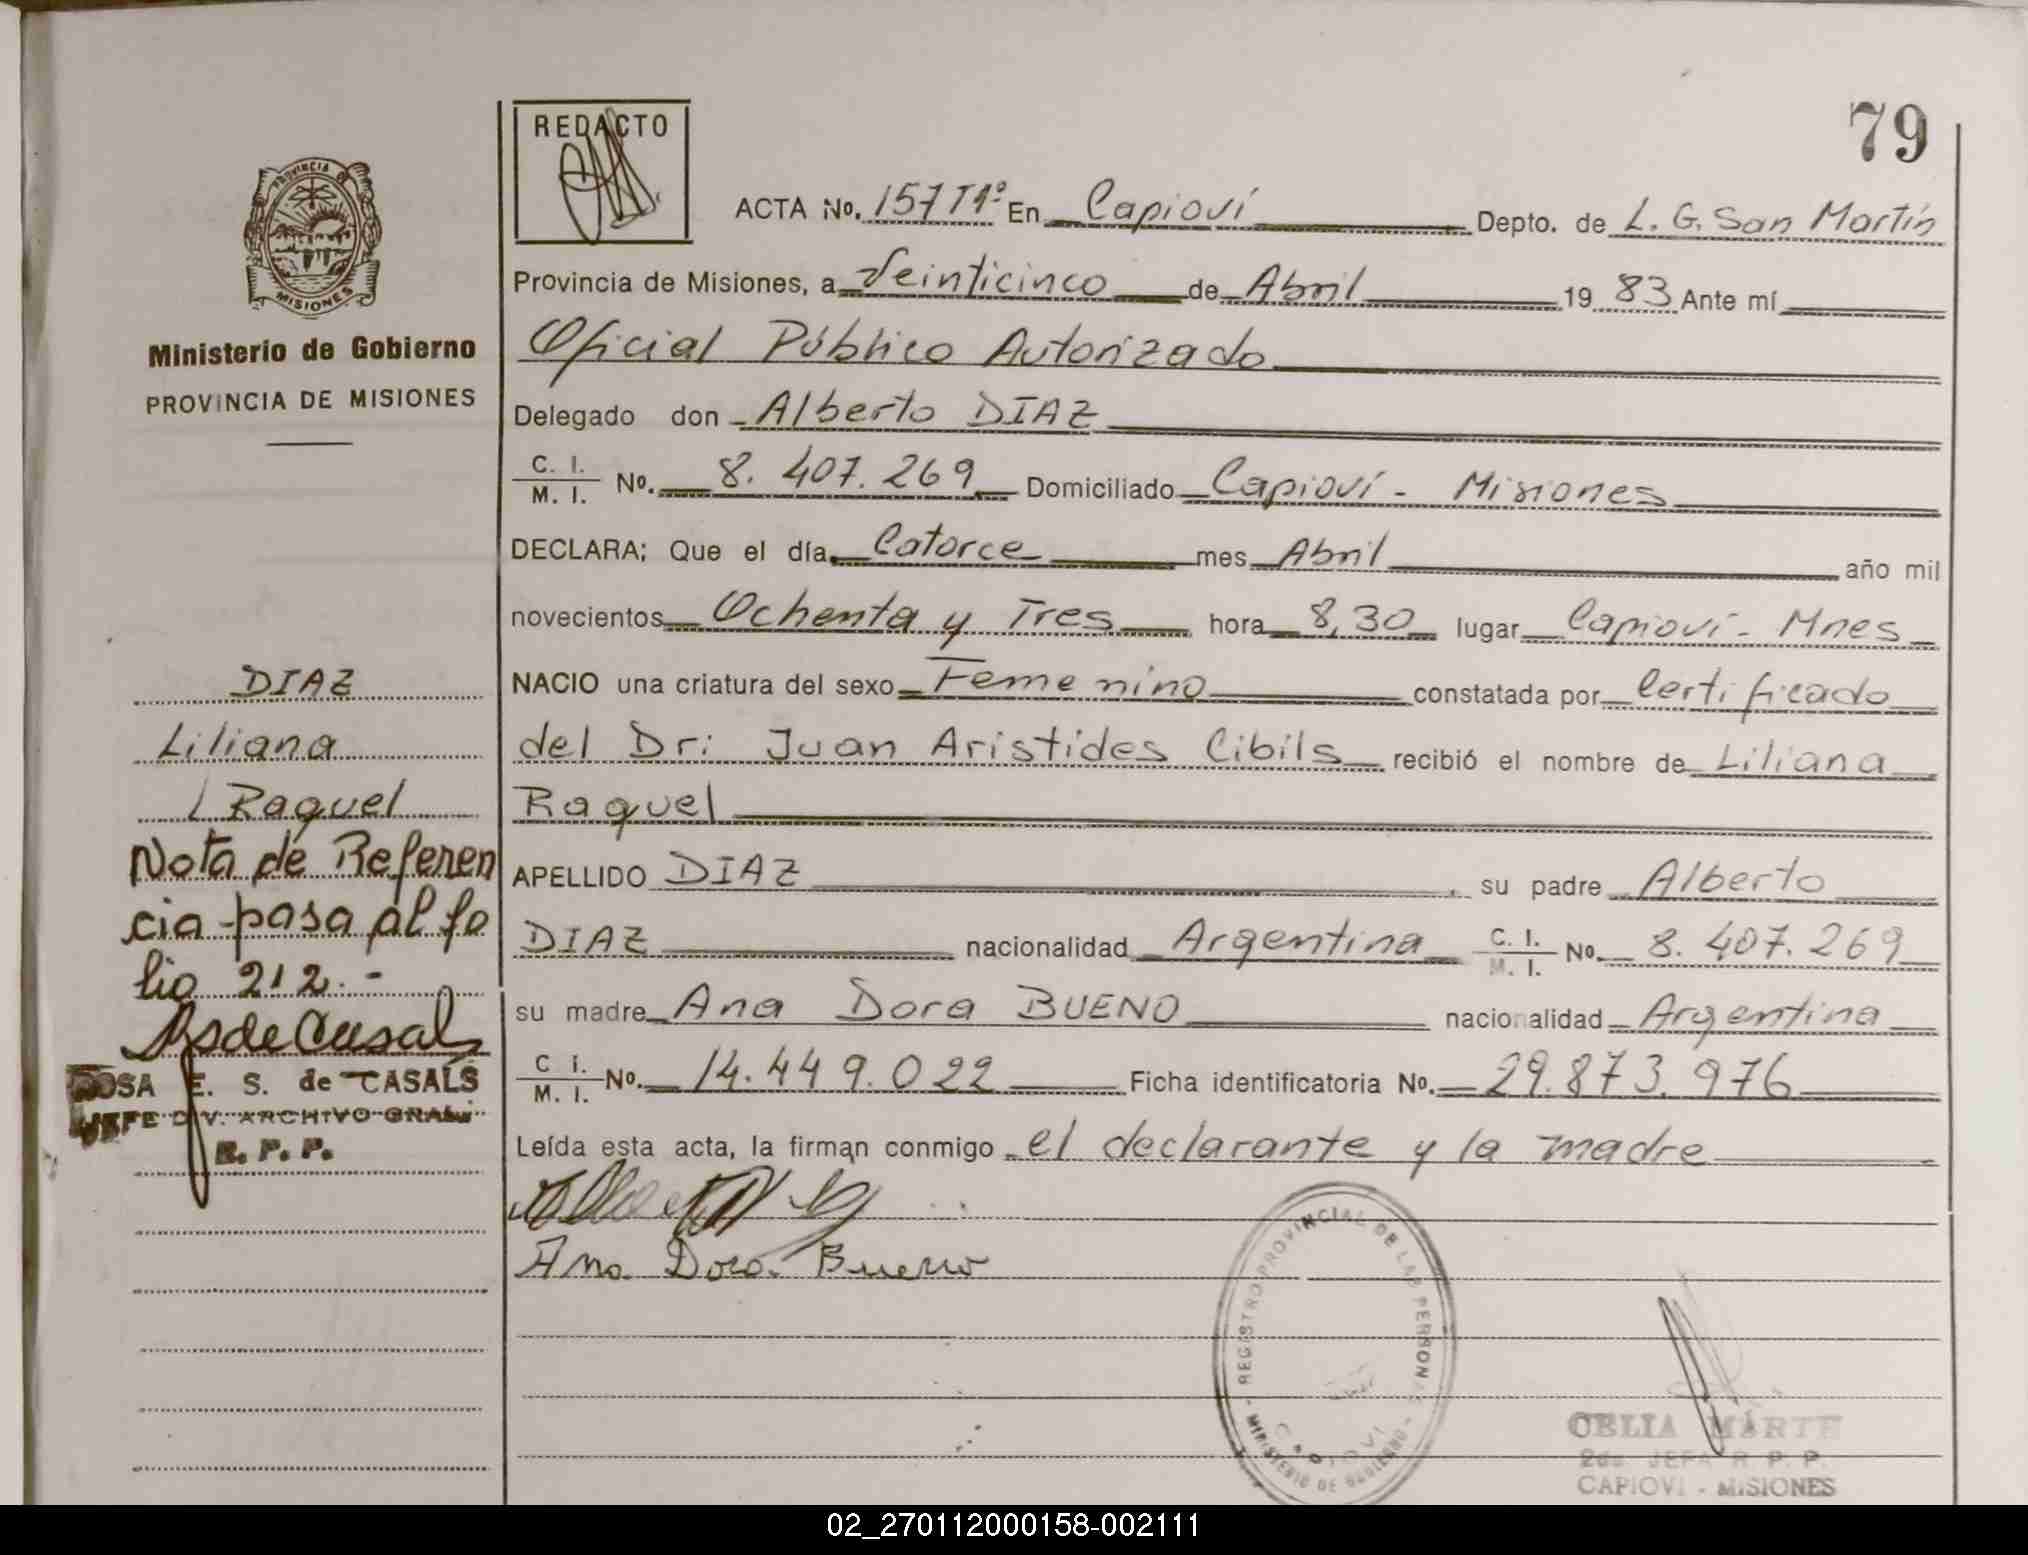 79
REDACTO
PROVINCIA DE
MISIONES
Ministerio de Gobierno
PROVINCIA DE MISIONES
ACTA No. 157 T1º En Capioví Depto. de L. G. San Martín
Provincia de Misiones, a Veinticinco de Abril 1983 Ante mí
Oficial Público Autorizado
Delegado don Alberto DIAZ
C. I. / M. I. No. 8.407.269 Domiciliado Capioví - Misiones
DECLARA; Que el día Catorce mes Abril año mil
novecientos Ochenta y Tres hora 8,30 lugar Capioví - Mnes
NACIO una criatura del sexo Femenino constatada por Certificado
del Dr: Juan Aristides Cibils recibió el nombre de Liliana
Raquel
APELLIDO DIAZ su padre Alberto
DIAZ nacionalidad Argentina C. I. / M. I. No. 8.407.269
su madre Ana Dora BUENO nacionalidad Argentina
C I. / M. I. No. 14.449.022 Ficha identificatoria No. 29.873.976
Leída esta acta, la firman conmigo el declarante y la madre
Ana Dora Bueno
DIAZ
Liliana
Raquel
Nota de Referen
cia pasa al fo
lio 212.-
RSdeCasals
ROSA E. S. de CASALS
JEFE DIV. ARCHIVO GRAL.
R. P. P.
REGISTRO PROVINCIAL DE LAS PERSONAS
CAPIOVI
MINISTERIO DE GOBIERNO
CELIA
2da JEFA R. P. P.
CAPIOVI - MISIONES
02_270112000158-002111